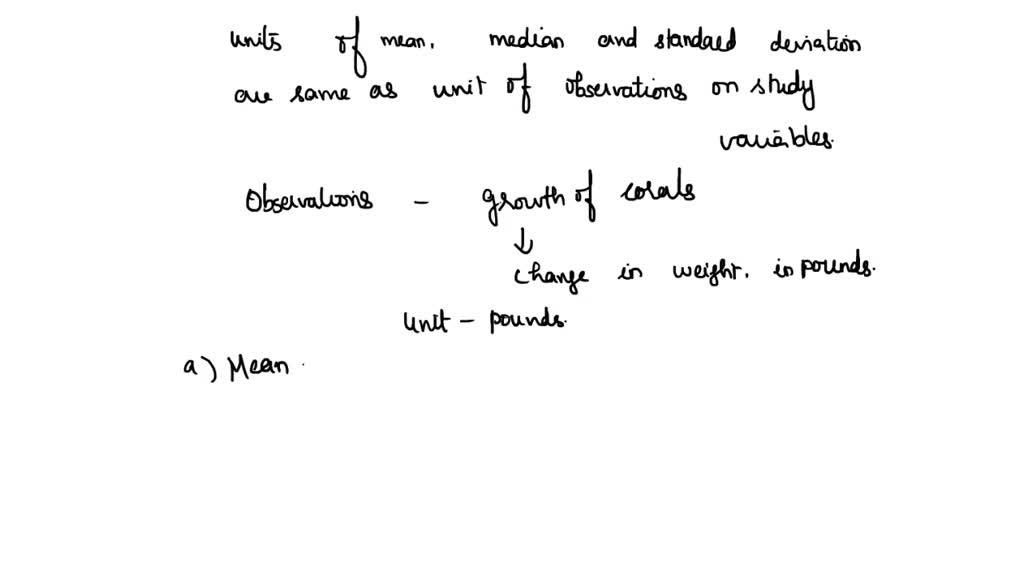 units of mean, median and standard deviation
are same as unit of observations on study
variables.
Observations - growth of corals
↓
change in weight, in pounds.
Unit - pounds.
a) Mean